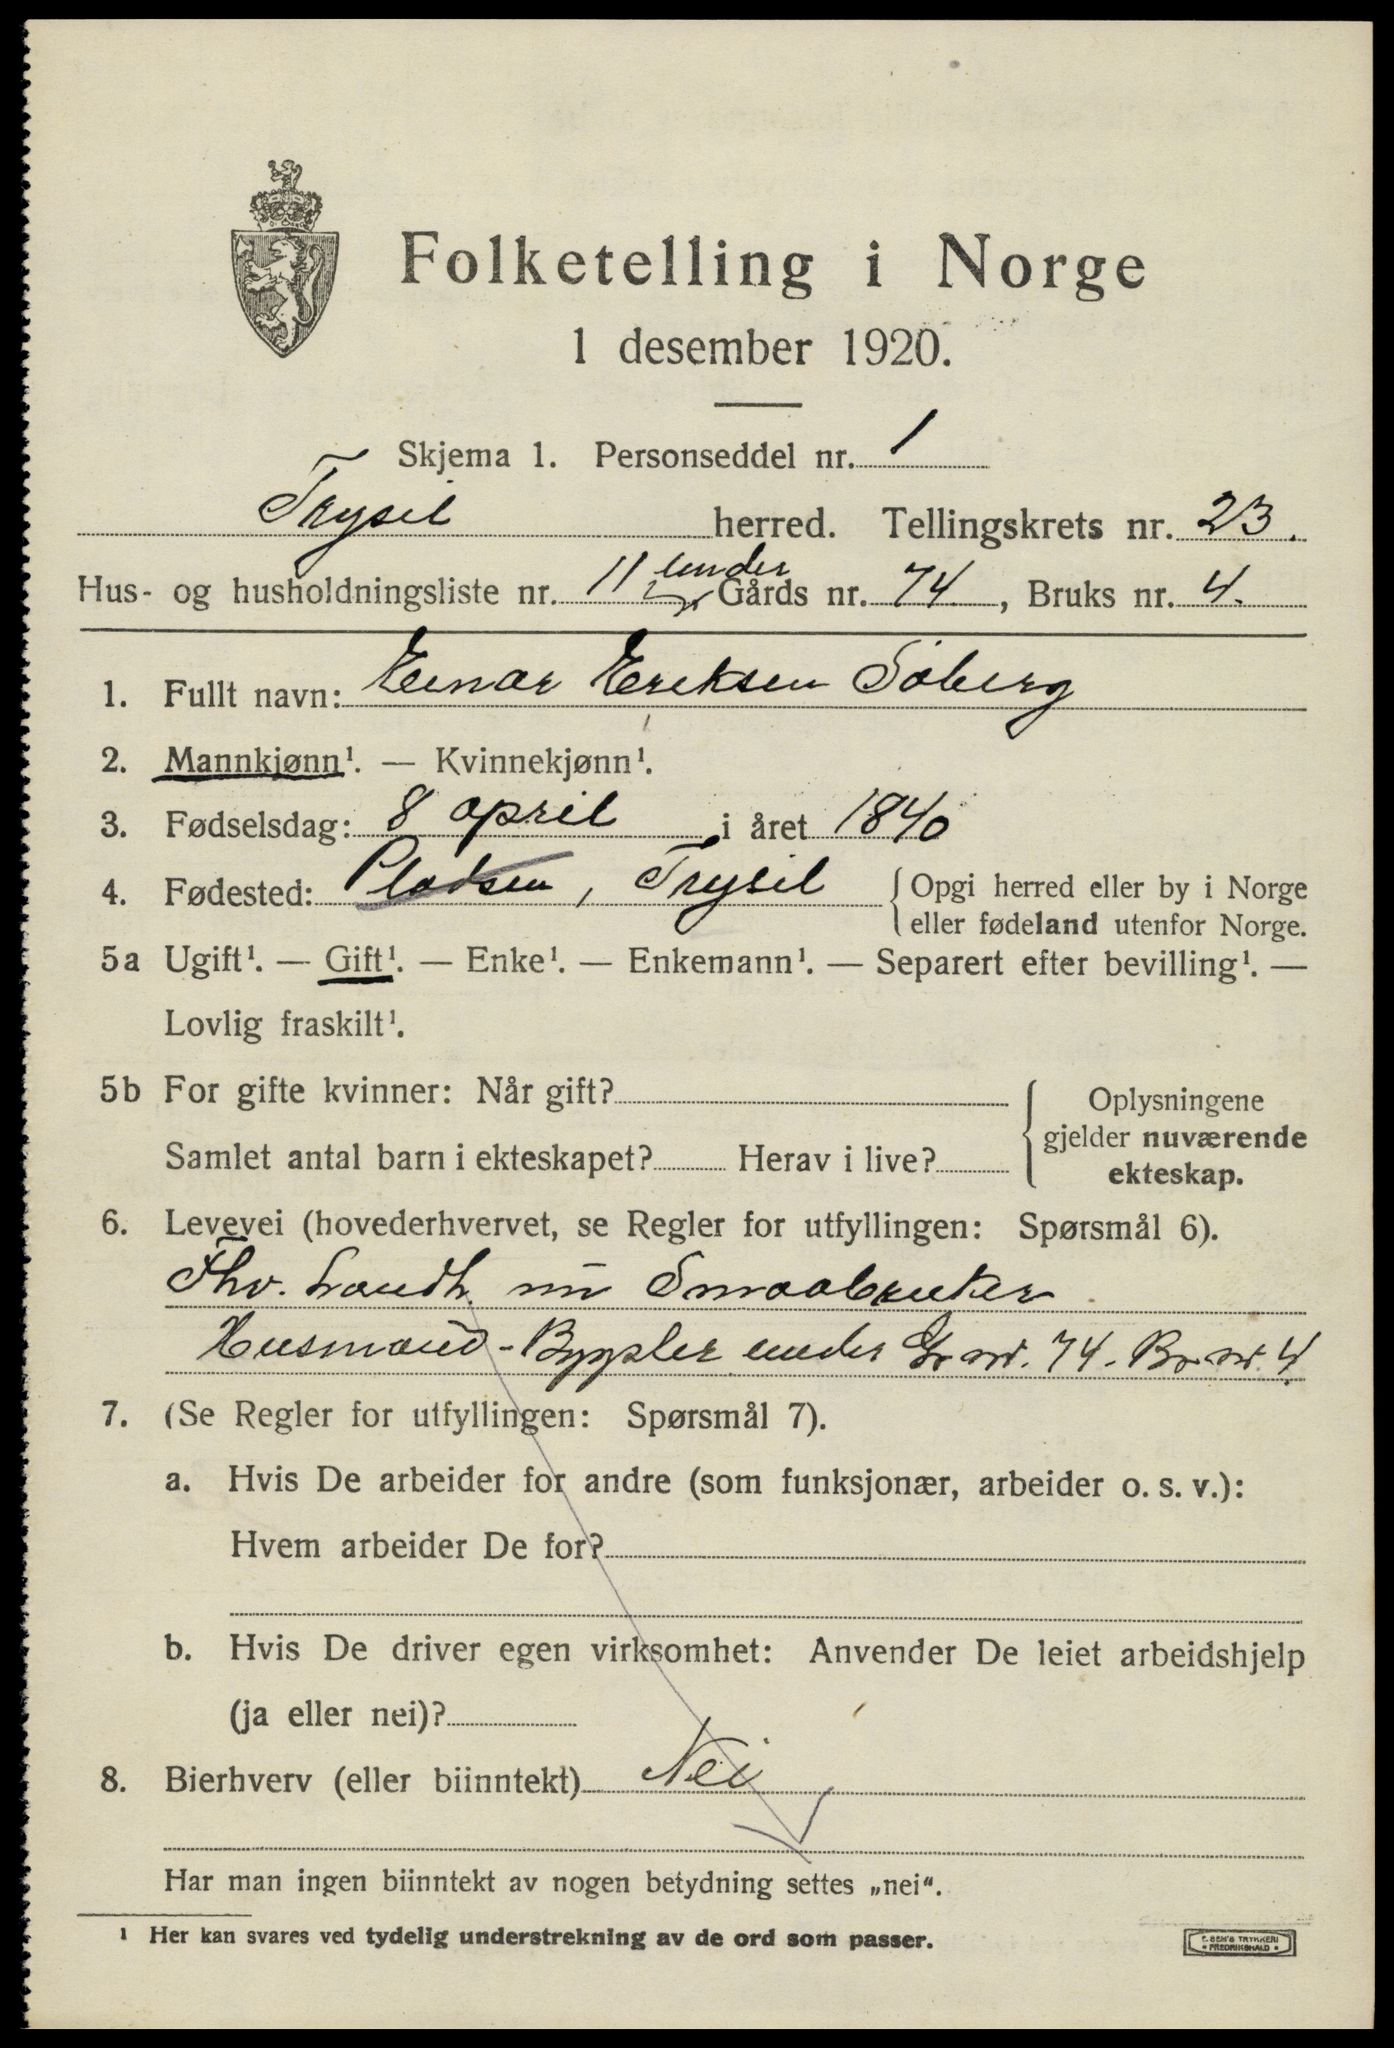 Folketelling i Norge
1 desember 1920.
Skjema 1. Personseddel nr. 1
Trysil herred. Tellingskrets nr. 23.
Hus- og husholdningsliste nr. 11 under Gårds nr. 74, Bruks nr. 4.
1. Fullt navn: Einar Eriksen Söberg
2. Mannkjønn¹. — Kvinnekjønn¹.
3. Fødselsdag: 8 april i året 1840
4. Fødested: Pladsen, Trysil {Opgi herred eller by i Norge
eller fødeland utenfor Norge.
5a Ugift¹. — Gift¹. — Enke¹. — Enkemann¹. — Separert efter bevilling¹. —
Lovlig fraskilt¹.
5b For gifte kvinner: Når gift?
Samlet antal barn i ekteskapet? Herav i live?
Oplysningene
gjelder nuværende
ekteskap.
6. Levevei (hovederhvervet, se Regler for utfyllingen: Spørsmål 6).
Fhv. Landh. nu Smaabruker
Husmand - Bygsler under Gr. nr. 74. Br. nr. 4
7. (Se Regler for utfyllingen: Spørsmål 7).
a. Hvis De arbeider for andre (som funksjonær, arbeider o. s. v.):
Hvem arbeider De for?
b. Hvis De driver egen virksomhet: Anvender De leiet arbeidshjelp
(ja eller nei)?
8. Bierhverv (eller biinntekt) Nei
Har man ingen biinntekt av nogen betydning settes „nei“.
¹ Her kan svares ved tydelig understrekning av de ord som passer.
E. SEM'S TRYKKERI
• FREDRIKSHALD •